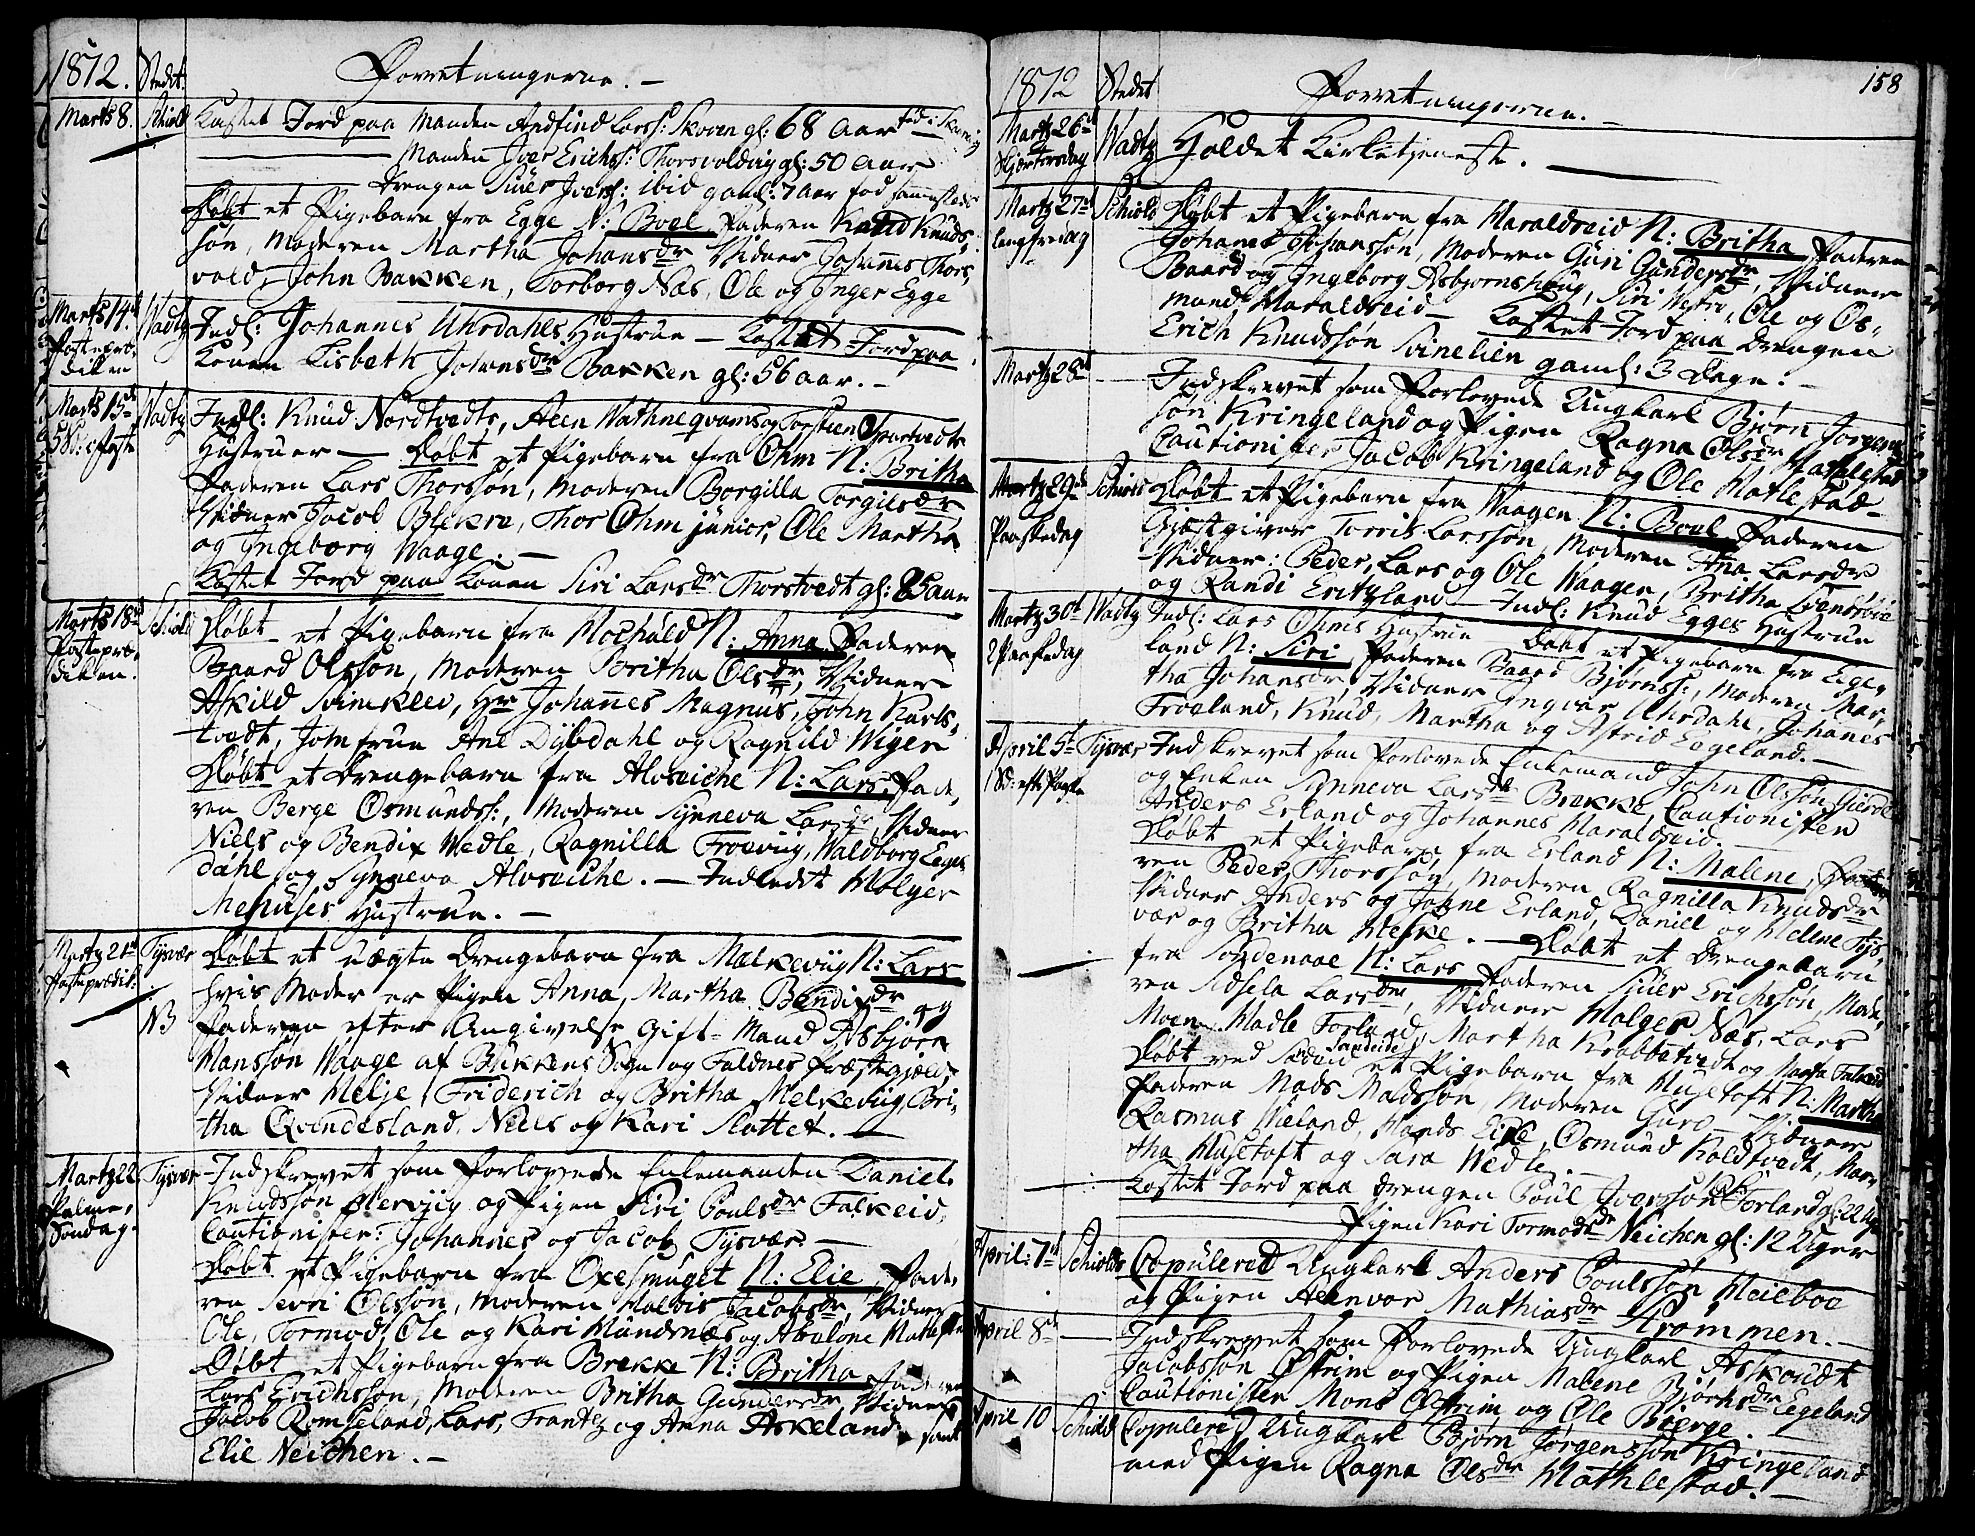 1812. Stedet. Forretningerne. –
Marts 8. Schiold Kastet Jord paa Manden Andfind Larss: Skoven gl: 68 Aar
Manden Joer Erichss: Thorsvoldvig gl: 50 Aar
Drengen Siuer Joers: ibid gaml: 7 Aar fød sammesteds
Døbt et Pigebarn fra Egge N: Boel Faderen Knud Knuds,
søn, Moderen Martha Johansdr Vidner Johannes Thors,
vold, John Bakken, Torborg Næs, Ole og Inger Egge
Marts 14de Fastepræ, diken Wadtz Indl: Johannes Uhrdahls Hustrue – Kastet Jord paa
Konen Lisbeth Johansdr Bakken gl: 56 aar. –
Marts 15de Wadtz Indl: Knud Nordtvedts, Aeen Wathneqvams og Torstien
Hustruer – Døbt et Pigebarn fra Ohm N: Britha
Faderen Lars Thorssøn, Moderen Borgilla Torgilsdr
Vidner Jacob Blekra, Thor Ohm junior, Ole Martha
og Ingeborg Waage. –
Kastet Jord paa Konen Siri Larsdr Thorstvedt gl: aar
Marts 18de Fastepræ, diken. Schiold Døbt et Pigebarn fra Hochuld N: Anna Faderen
Baard Olssøn, Moderen Britha Olsdr, Vidner
Askild Svineklev, Hr Johannes Magnus, John Karls,
tvedt, Jomfrue Ane Dybdahl og Ragnild Wigen
Døbt et Drengebarn fra Alvseiche N: Lars, Fade,
ren Berge Osmundss:, Moderen Synneva Larsdr, Vidner
Niels og Bendix Wedle, Ragnilla Froeviig, Waldborg Eeges
dahl og Synneva Alvseiche. – Indledt Holger
Mehuses Hustrue. –
Martz 21de Fasteprædik: Tysvær NB Døbt et uægte Drengebarn fra Melkeviig N: Lars
hvis Moder er Pigen Anna Martha Bendixdr og
Faderen efter Angivelse Gift-Mand Asbjørn
Hanssøn Waage af Bukkens Sogn og Faldnes Præstegjæld
Vidner Helje, Friderich og Britha Melkeviig, Bri,
tha Qvindesland, Niels og Kari Slottet. –
Martz 22 Palme, Søndag. Tysvær Indskrevet som Forlovede Enkemanden Daniel
Knudssøn Hervjig og Pigen Siri Poulsdr Falkeid,
Cautionister: Johannes og Jacob Tysvær. –
Døbt et Pigebarn fra Oxesmuget N: Elie, Fade,
ren Olssøn, Moderen Jacobsdr, Vidner
Ole, Tormod, Ole og Kari Mundsnæs og Abalone
Døbt et Pigebarn fra Brekke N: Britha Faderen
Lars Erichssøn, Moderen Britha Gundersdr, Vidner
Jacob Romseland, Lars, Frantz og Anna Askeland samt
Elie Neichen. –
1812 Stedet Forretningerne. – 158
Martz 26de Skjærtorsdag Wadtz Holdet Kirketjeneste. –
Martz 27de langfredag Schiold Døbt et Pigebarn fra Haraldseid N: Britha Faderen
Johanes Johanssøn, Moderen Guri Gundersdr, Vidner
Baard og Ingeborg Asbjørnshoug, Siri Ole og Os,
mund Haraldseid – Kastet Jord paa Drengen
Erich Knudssøn Svinelien gaml: 3 Dage. –
Martz 28de Indskrevet som Forlovede Ungkarl Bjørn Jorgens
søn Kringeland og Pigen Ragna Olsdr
Cautionister Jacob Kringeland og Ole Matlestad –
Martz 29de Paaskedag Schiold Døbt et Pigebarn fra Waagen N: Boel Faderen
Gjæstgiver Torris Larssøn, Moderen Ana Larsdr
Vidner: Peder, Lars og Ole Waagen, Britha
og Randi Eritzland – Indl: Knud Egges Hustrue
Martz 30te 2 Paaskedag Wadtz Indl: Lars Ohms Hustrue Døbt et Pigebarn fra Eege,
land N: Siri, Faderen Baard Bjørnss:, Moderen Mar,
tha Johansdr, Vidner Yngvar Uhrdahl, Johanes
Froeland, Knud, Martha og Astrid Eegeland. –
April 5te Tysvær Indskrevet som Forlovede Enkemand John Olssøn
og Enken Synneva Larsdr Brekke, Cautionister
Anders Erland og Johannes Haraldseid. –
Døbt et Pigebarn fra Erland N: Malene, Fade
ren Peder Thorssøn, Moderen Ragnilla Knudsdr
Vidner Anders og Johne Erland, Daniel og Helene Tys,
vær og Britha Heske. – Døbt et Drengebarn
fra Søndenaae N: Lars Faderen Siuer Erichssøn, Mode,
ren Larsdr, Vidner Holger Næs, Lars
Moen, Madle Forland, Martha Krabbetvedt og
Døbt ved Skeeid Sandeide et Pigebarn fra Husetoft N: Martha
Faderen Mads Madssøn, Moderen Guro – Vidner
Rasmus Wieland, Mands Eike, Osmund Koldtvedt, Mar,
tha Husetoft og Sara Wedle. –
Kastet Jord paa Drengen Poul Joerssøn Forland gl: 22
Pigen Kari Tormodsdr Neichen gl: 12 Uger
April: 7de Schiold Copuleret Ungkarl Anders Poulssøn Heieboe
og Pigen Aeenvor Mathiasdr Strømmen. –
April 8de Indskrevet som Forlovede Ungkarl Askoudt
Jacobssøn Østrim og Pigen Malene Bjørnsdr Eegeland
Cautionister Mons Østrim og Ole Bjerge. –
April 10 Schiold Copuleret Ungkarl Bjørn Jørgenssøn Kringeland
med Pigen Ragna Olsdr Mathlestad. –